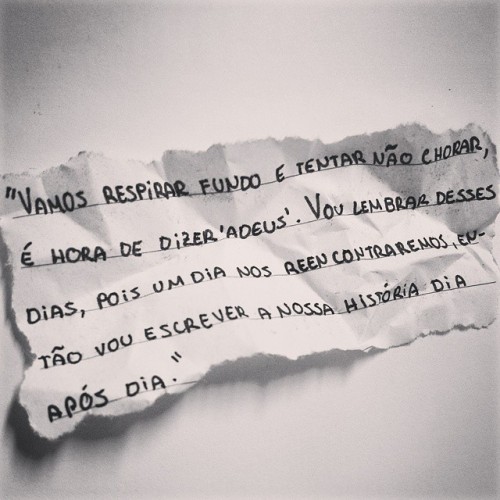 "VAMOS RESPIRAR FUNDO E TENTAR NÃO CHORAR,
É HORA DE DIZER 'ADEUS'. VOU LEMBRAR DESSES
DIAS, POIS UM DIA NOS REENCONTRAREMOS, EN-
TÃO VOU ESCREVER A NOSSA HISTÓRIA DIA
APÓS DIA."